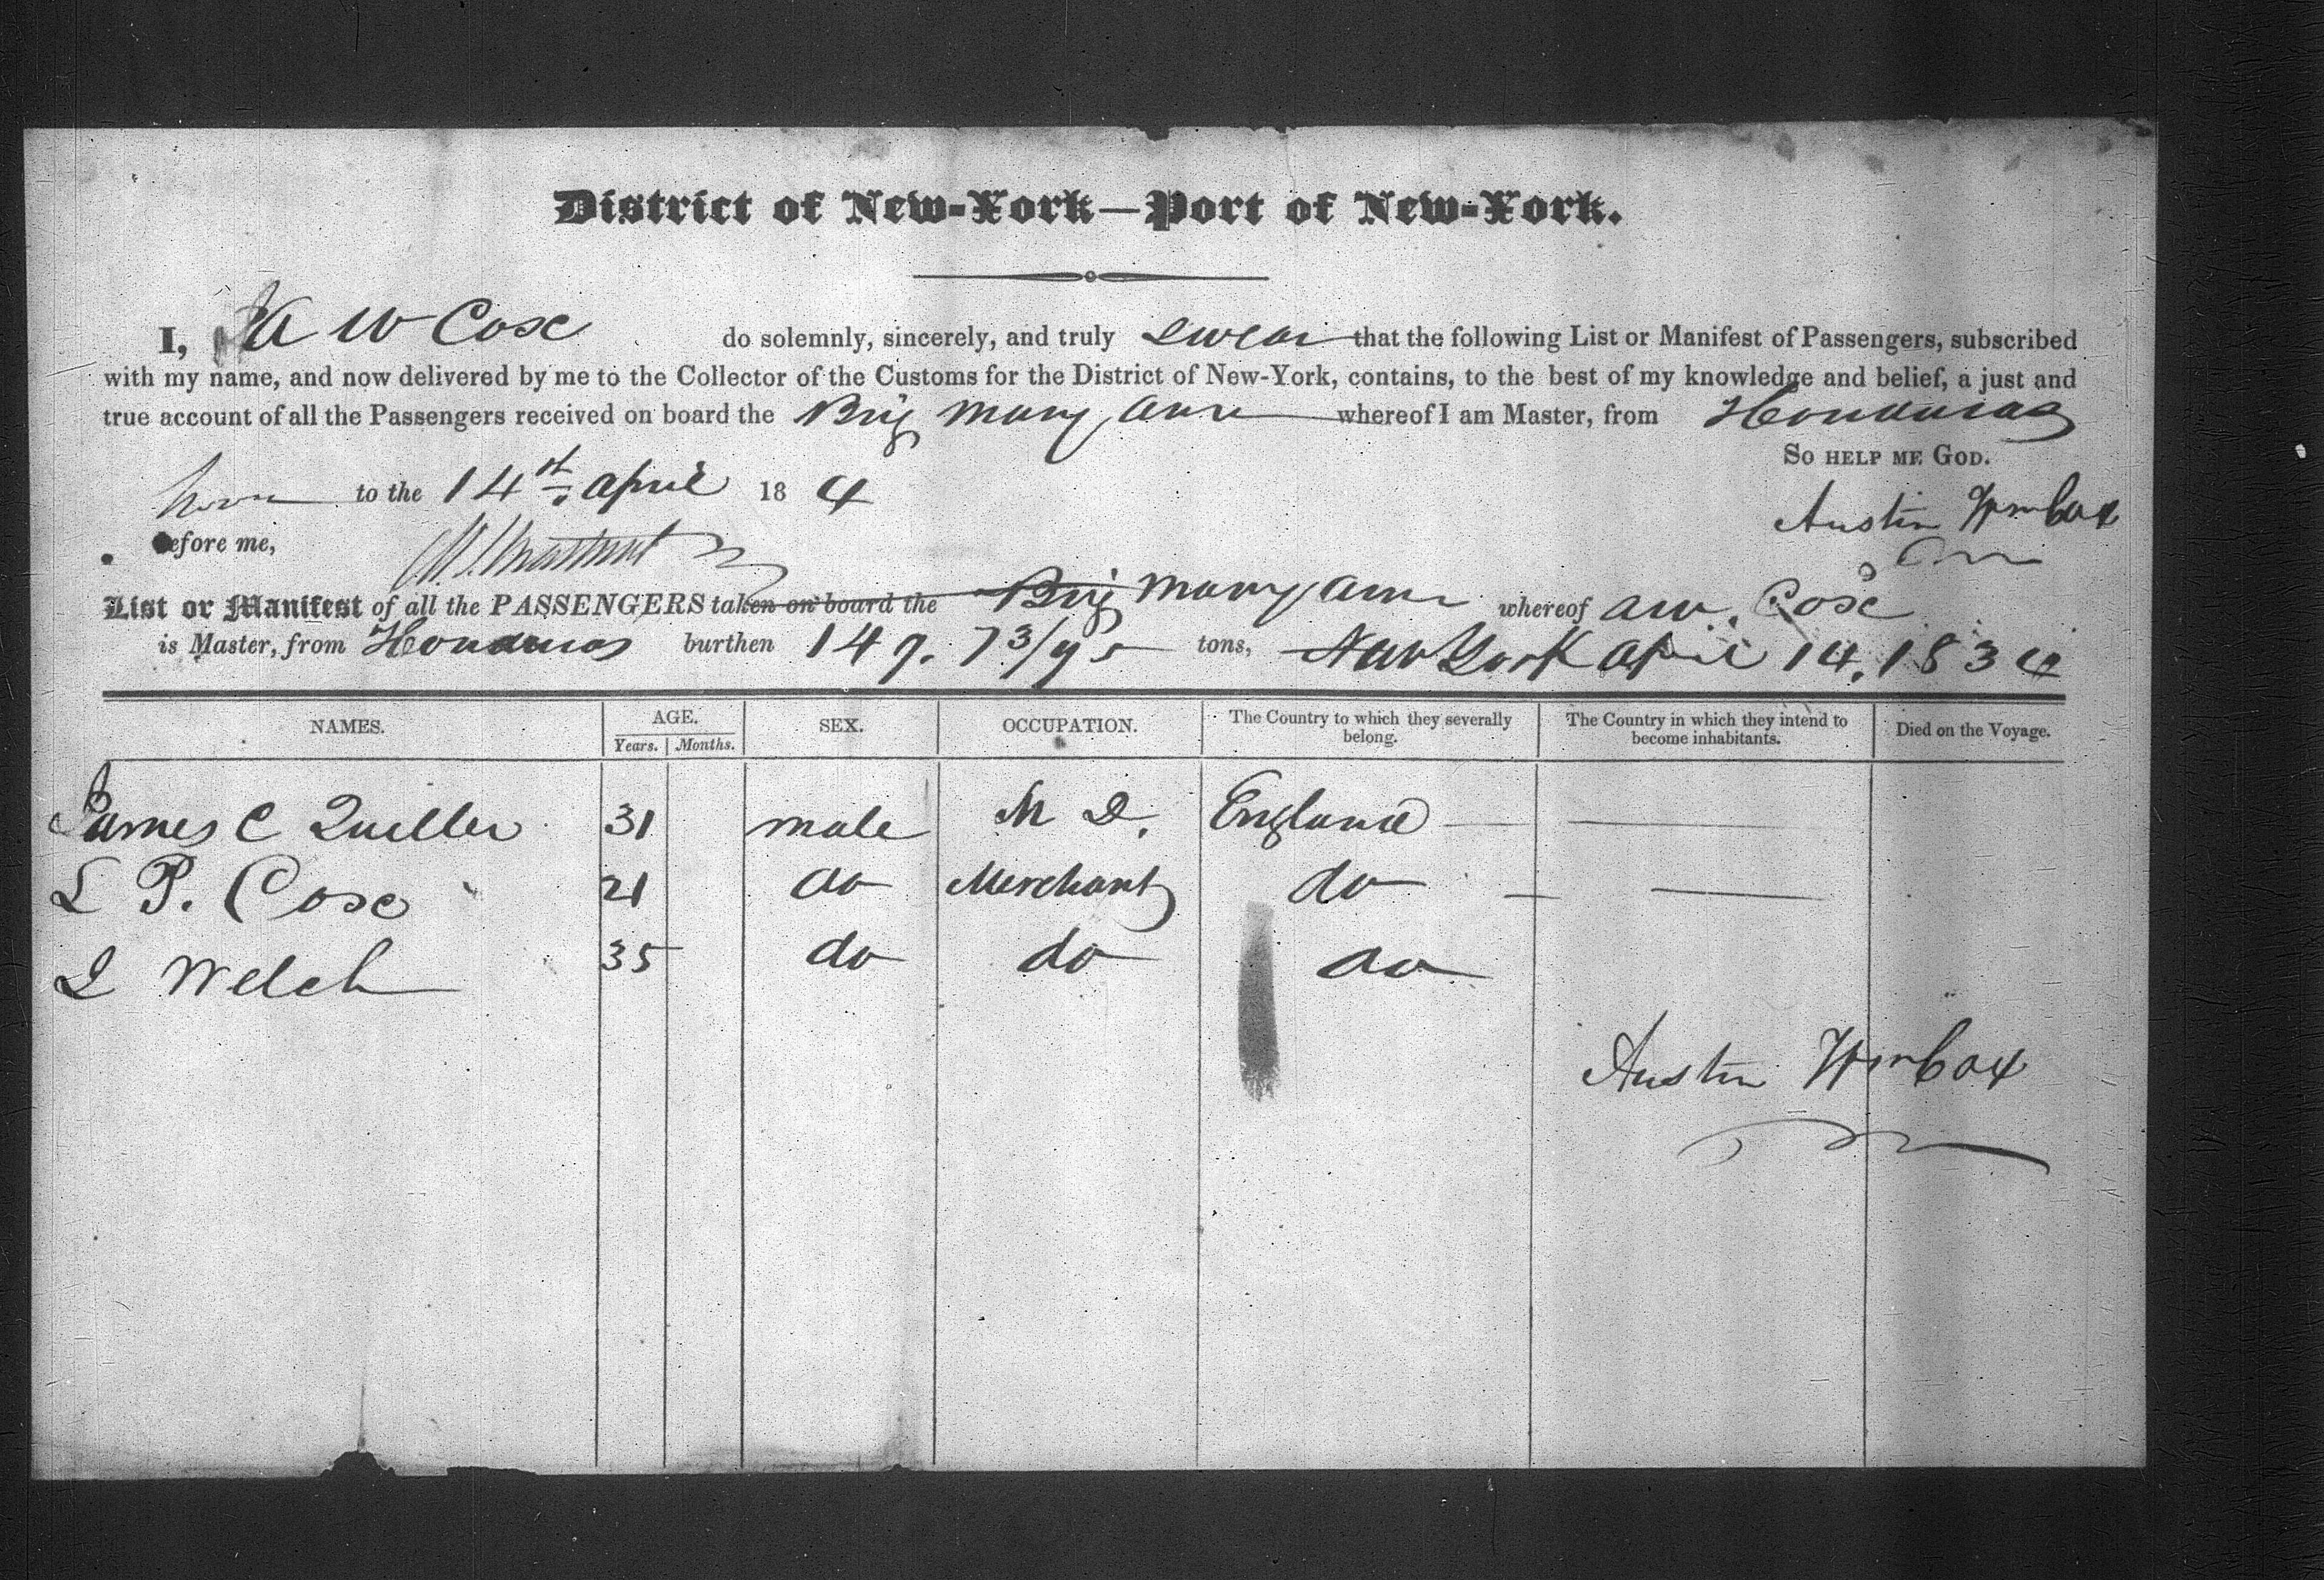 District of New-York—Port of New-York.
I, A W Cox do solemnly, sincerely, and truly swear that the following List or Manifest of Passengers, subscribed
with my name, and now delivered by me to the Collector of the Customs for the District of New-York, contains, to the best of my knowledge and belief, a just and
true account of all the Passengers received on board the Brig Mary Ann whereof I am Master, from Honduras
So help me God.
Sworn to the 14st. April 18 4
Austin Wm Cox
before me,
List or Manifest of all the PASSENGERS taken on board the Brig Mary Ann whereof A W. Cox
is Master, from Honduras burthen 149. 73/95 tons, New York April 14. 1834
NAMES. AGE. SEX. OCCUPATION. The Country to which they severally belong. The Country in which they intend to become inhabitants. Died on the Voyage.
Years. Months.
James C Quiller 31 male M D. England —
L P. Cox 21 do Merchant do —
L Welch 35 do do do
Austin Wm Cox